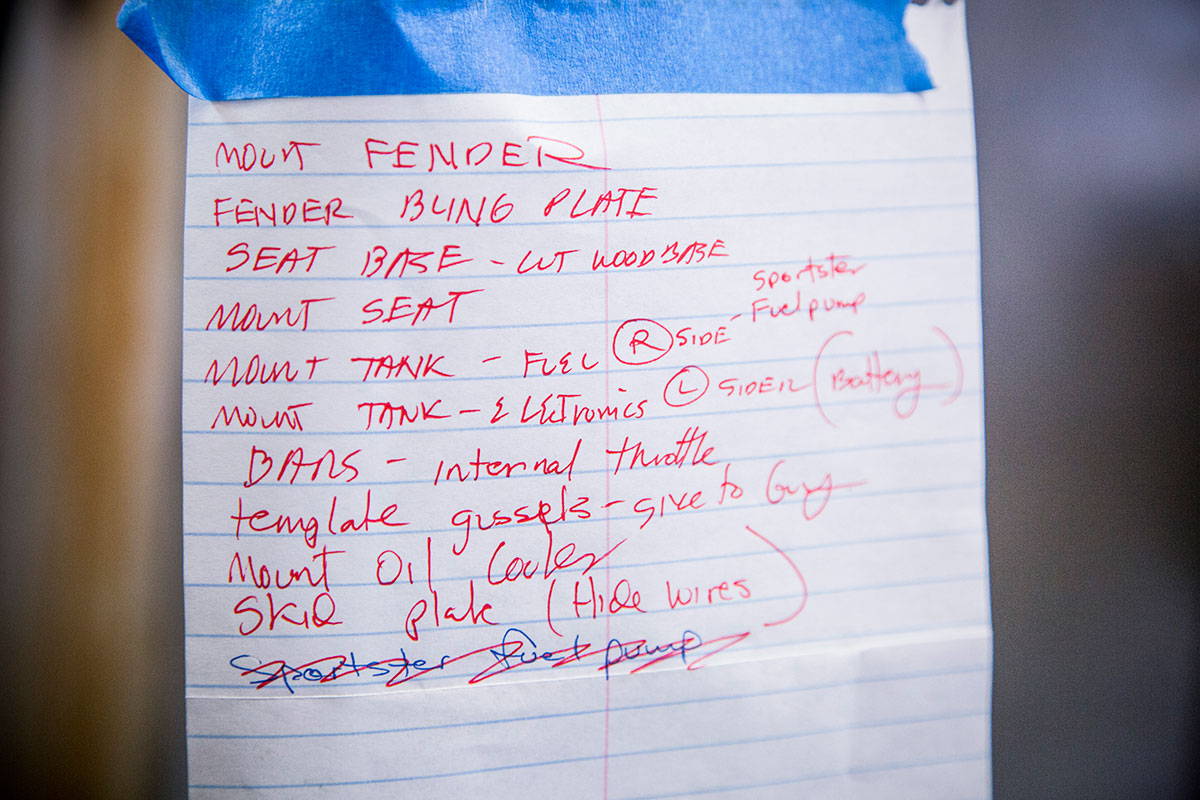 MOUNT FENDER
FENDER BLING PLATE
SEAT BASE - CUT WOOD BASE
MOUNT SEAT
MOUNT TANK - FUEL (R) SIDE - Sportster Fuel pump
MOUNT TANK - ELECTronics (L) SIDE (Battery)
BARS - internal throttle
template gussets - give to Guy
Mount Oil Cooler
Skid plate (Hide wires)
Sportster fuel pump